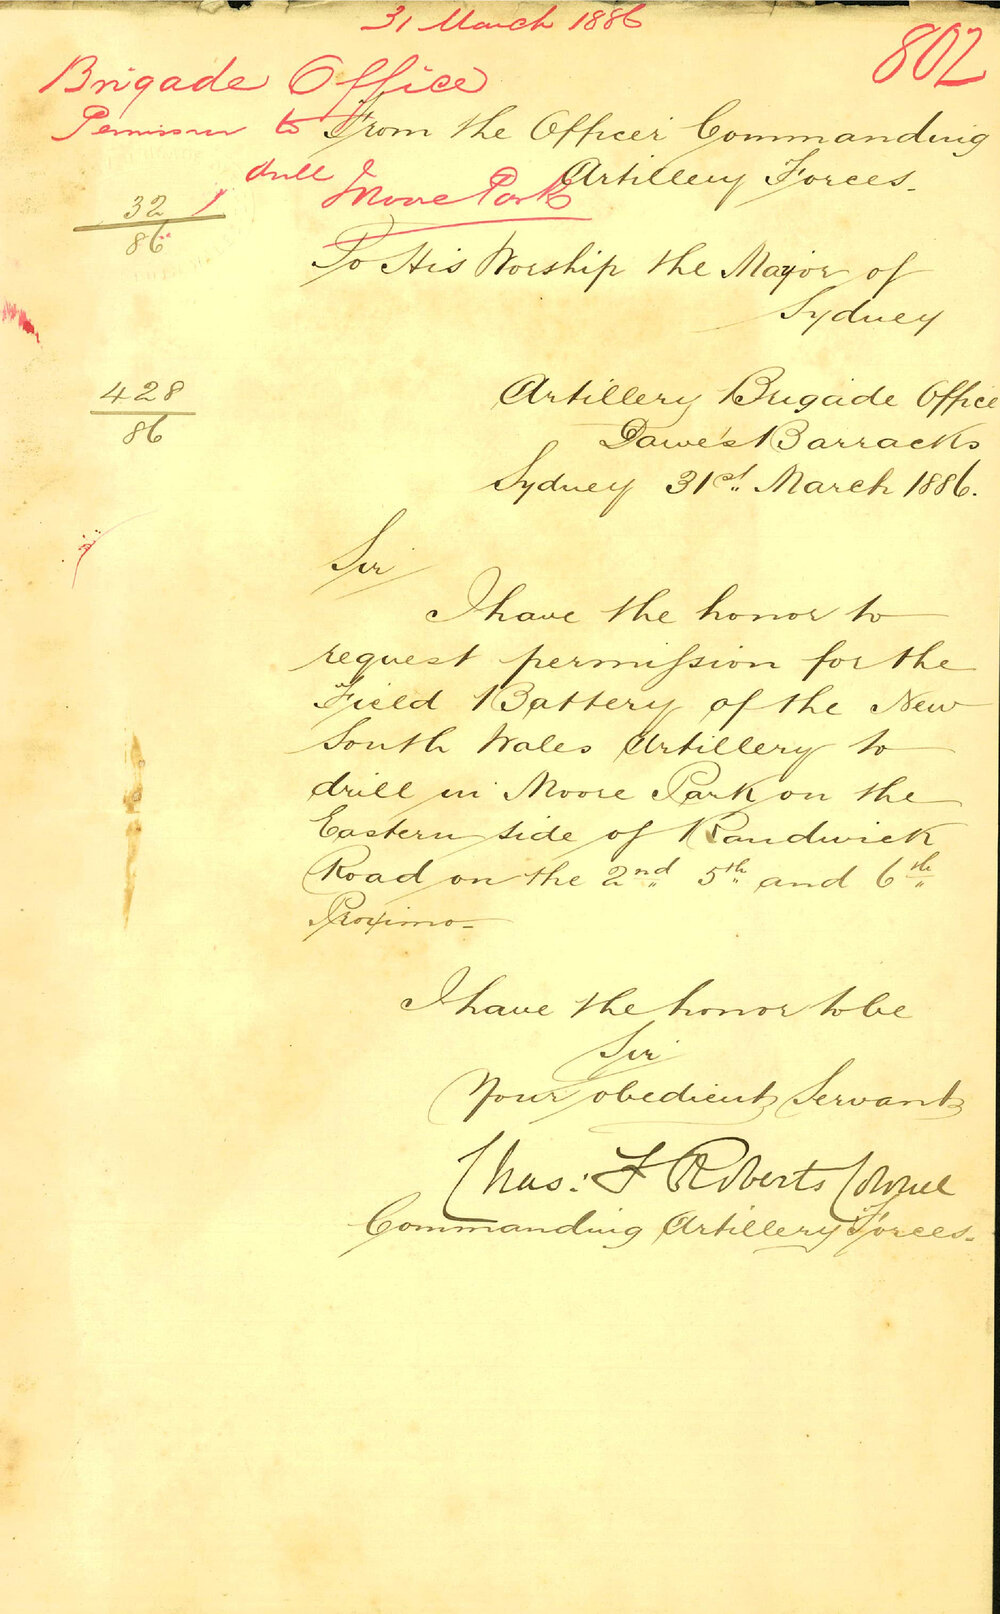 31 March 1886
802
Brigade Office
Permission to
drill
Moore Park
From the Officer Commanding
Artillery Forces.
32
86
To His Worship the Mayor of
Sydney
428
86
Artillery Brigade Office
Dawe's Barracks
Sydney 31st. March 1886.
Sir
I have the honor to
request permission for the
Field Battery of the New
South Wales Artillery to
drill in Moore Park on the
Eastern side of Randwick
Road on the 2nd 5th and 6th
Proximo
I have the honor to be
Sir
Your obedient Servant
Chas: F Roberts Colonel
Commanding Artillery Forces.